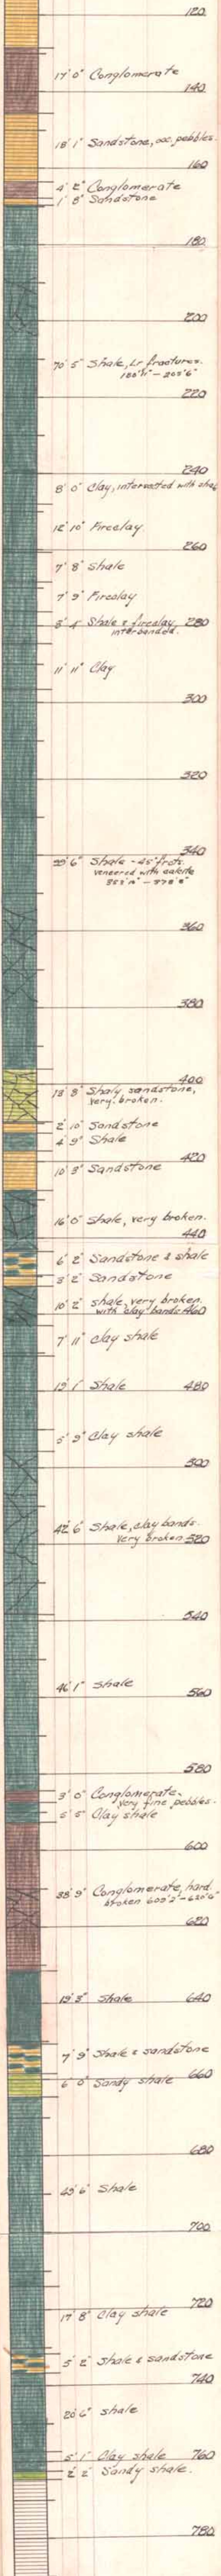 120
17' 0" Conglomerate
140
18' 1" Sandstone, occ. pebbles.
160
4' 2" Conglomerate
1' 8" Sandstone
180
200
70' 5" Shale, Lr fractures.
180' 11" - 205' 6"
220
240
8' 0" Clay, intersected with shale
12' 10" Fireclay
260
7' 8" Shale
7' 9" Fireclay
3' 4" Shale & fireclay, 280
interbanded.
11' 11" Clay
300
320
340
99' 6" Shale - 45° fract.
veneered with calcite
360
380
400
13' 8" Shaly sandstone,
very broken.
2' 10" Sandstone
4' 9" Shale
420
10' 3" Sandstone
16' 0" Shale, very broken.
440
6' 2" Sandstone & shale
3' 2" Sandstone
10' 2" shale, very broken
with clay bands 460
7' 11" Clay shale
13' 1" Shale 480
5' 9" Clay shale
500
42' 6" Shale, clay bands.
Very broken 520
540
46' 1" Shale
560
580
3' 0" Conglomerate,
very fine pebbles.
5' 5" Clay shale
600
38' 9" Conglomerate, hard
broken 609' 2" - 620' 6"
620
19' 3" Shale 640
7' 9" Shale & sandstone
660
6' 0" Sandy shale
680
49' 6" Shale
700
720
17' 8" Clay shale
5' 2" Shale & sandstone
740
20' 6" shale
5' 1" Clay shale 760
2' 2" Sandy shale.
780